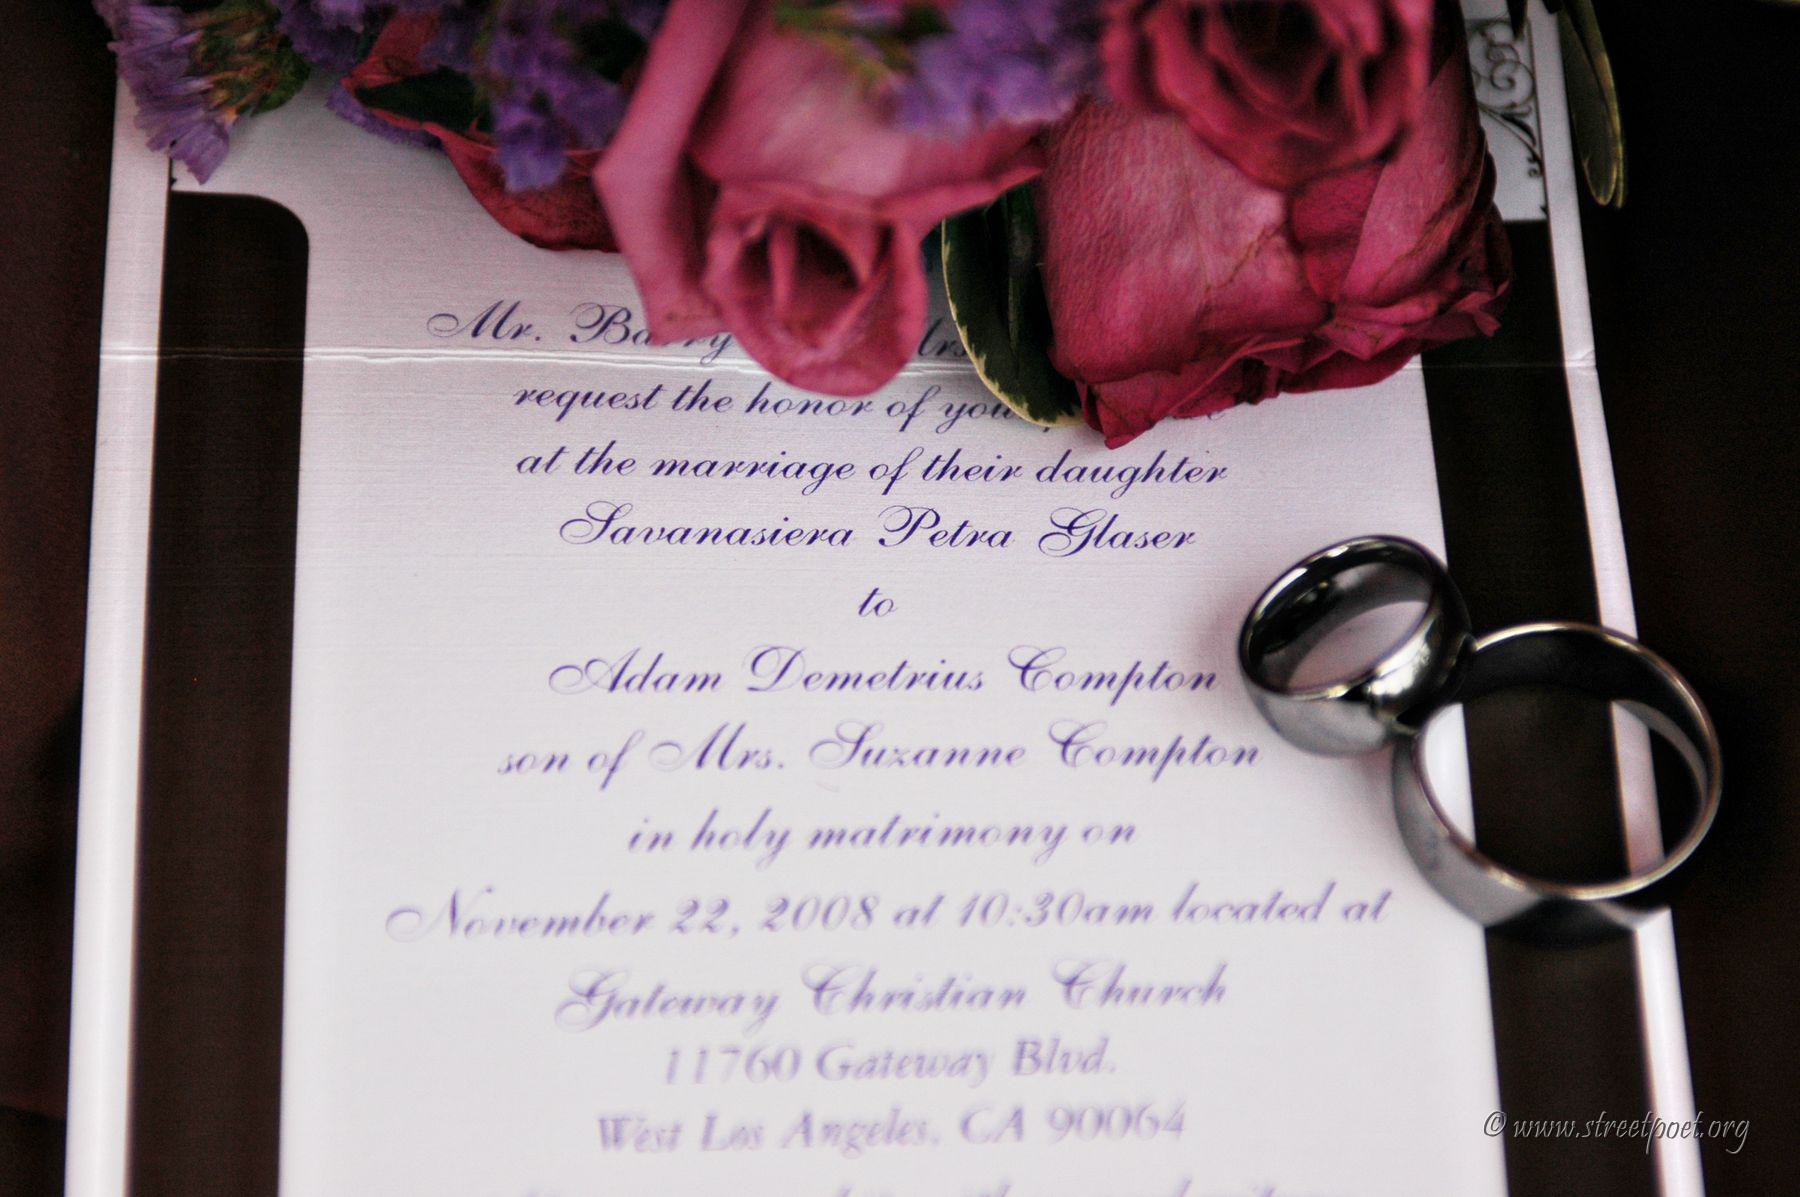 Mr.
request the honor of
at the marriage of their daughter
Savanasiera Petra Glaser
to
Adam Demetrius Compton
son of Mrs. Suzanne Compton
in holy matrimony on
November 22, 2008 at 10:30am located at
Gateway Christian Church
11760 Gateway Blvd.
West Los Angeles, CA 90064
© www.streetpoet.org